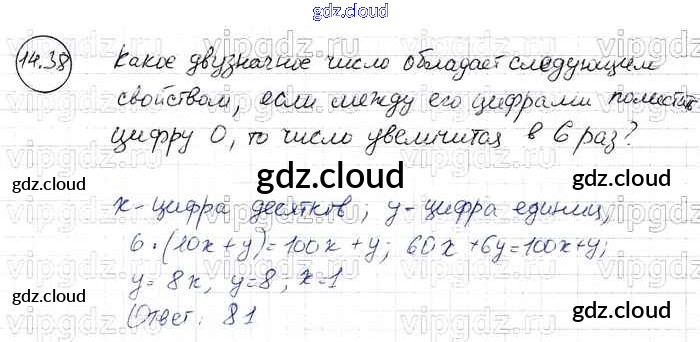 gdz.cloud
14.38 Какое двузначное число обладает следующим
свойством, если между его цифрами поместить
цифру 0, то число увеличится в 6 раз?
gdz.cloud gdz.cloud gdz.cloud
x - цифра десятков; y - цифра единиц,
6·(10x+y)=100x+y; 60x+6y=100x+y;
y=8x, y=8; x=1
Ответ: 81
gdz.cloud gdz.cloud
gdz.cloud